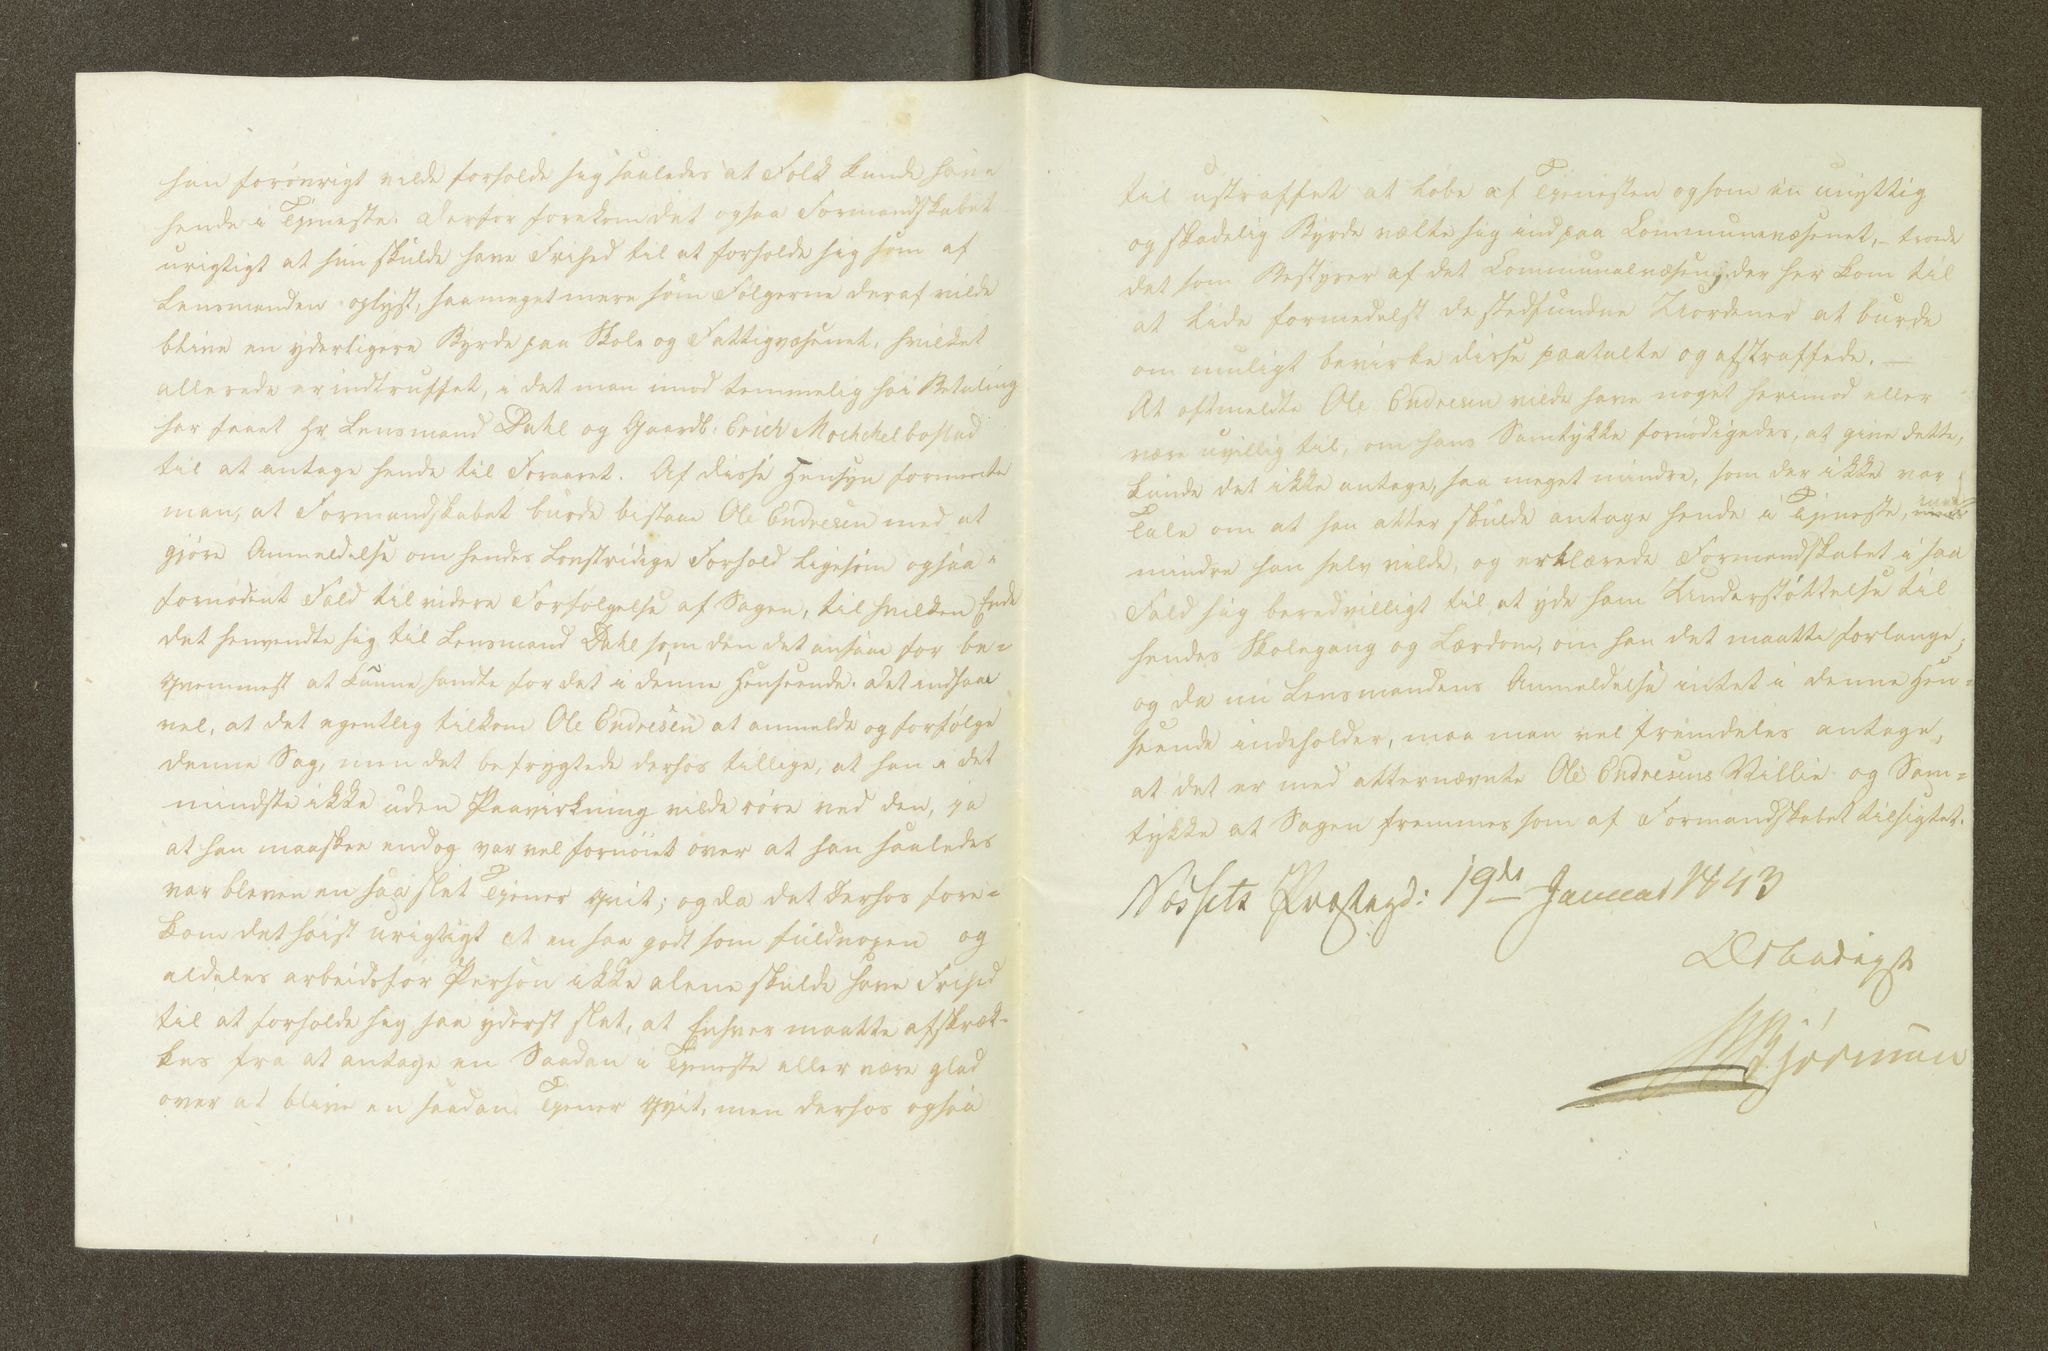 hun forøvrigt vilde forholde sig saaledes at Folk kunde have
hende i Tjeneste. Derfor forekom det ogsaa Formandskabet
urigtigt at hun skulde have Frihed til at forholde sig som af
Lensmanden oplyst, saameget mere som Følgerne deraf vilde
blive en yderligere Byrde paa Skole og Fattigvæsenet, hvilket
allerede er indtruffet, i det man imod temmelig høi Betaling
har faaet Hr Lensmand Dahl og Gaardb: Erich Mochchelbostad
til at antage hende til Foraaret. Af disse Hensyn formeente
man, at Formandskabet burde bistaae Ole Endresen med at
gjøre Anmeldelse om hendes Lovstridige Forhold ligesom ogsaa i
fornødent Fald til videre Forfølgelse af Sagen, til hvilken Ende
det henvendte sig til Lensmand Dahl som den det ansaae for be-
qvemmest at kunne handle for det i denne Henseende. Det indsaae
vel, at det egentlig tilkom Ole Endresen at anmelde og forfølge
denne Sag, men det befrygtede derhos tillige, at han i det
mindste ikke uden Paavirkning vilde røre ved den, ja
at han maaskee endog var vel fornøiet over at han saaledes
var bleven en saa slet Tjener qvit; og da det derhos fore-
kom det høist urigtigt at en saa godt som fuldvoxen og
aldeles arbeidsfør Person ikke alene skulde have Frihed
til at forholde sig saa yderst slet, at Enhver maatte afskræk-
kes fra at antage en Saadan i Tjeneste eller være glad
over at blive en saadan Tjener qvit, men derhos ogsaa
til ustraffet at løbe af Tjenesten og som en unyttig
og skadelig Byrde vælte sig ind paa Communevæsenet, - troede
det som Bestyrer af det Communalvæsen, der her kom til
at lide formedelst de stedfundne Uordener at burde
om muligt bevirke disse paatalte og afstraffede. -
At oftmeldte Ole Endresen vilde have noget herimod eller
være uvillig til, om hans Samtykke fornødigedes, at give dette,
kunde det ikke antage, saa meget mindre, som der ikke var
Tale om at han atter skulde antage hende i Tjeneste,
mindre han selv vilde, og erklærede Formandskabet i saa
Fald sig beredvilligt til at yde ham Understøttelse til
hendes Skolegang og Lærdom, om han det maatte forlange;
og da nu Lensmandens Anmeldelse intet i denne Hen-
seende indeholder, maa man vel fremdeles antage,
at det er med atternævnte Ole Endresens Villie og Sam-
tykke at Sagen fremmes som af Formandskabet tilsigtet.
Næssets Præstegd: 19de Januar 1843
Ærbødigst
Bjørnsen